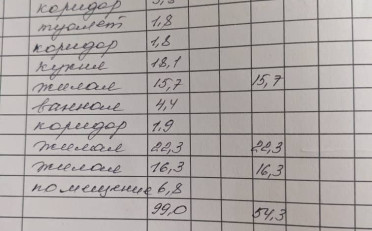 коридор
туалет 1,8
коридор 1,8
кухня 18,1
жилая 15,7 15,7
ванная 4,4
коридор 1.9
жилая 22,3 22,3
жилая 16,3 16,3
помещение 6,8
99,0 54,3